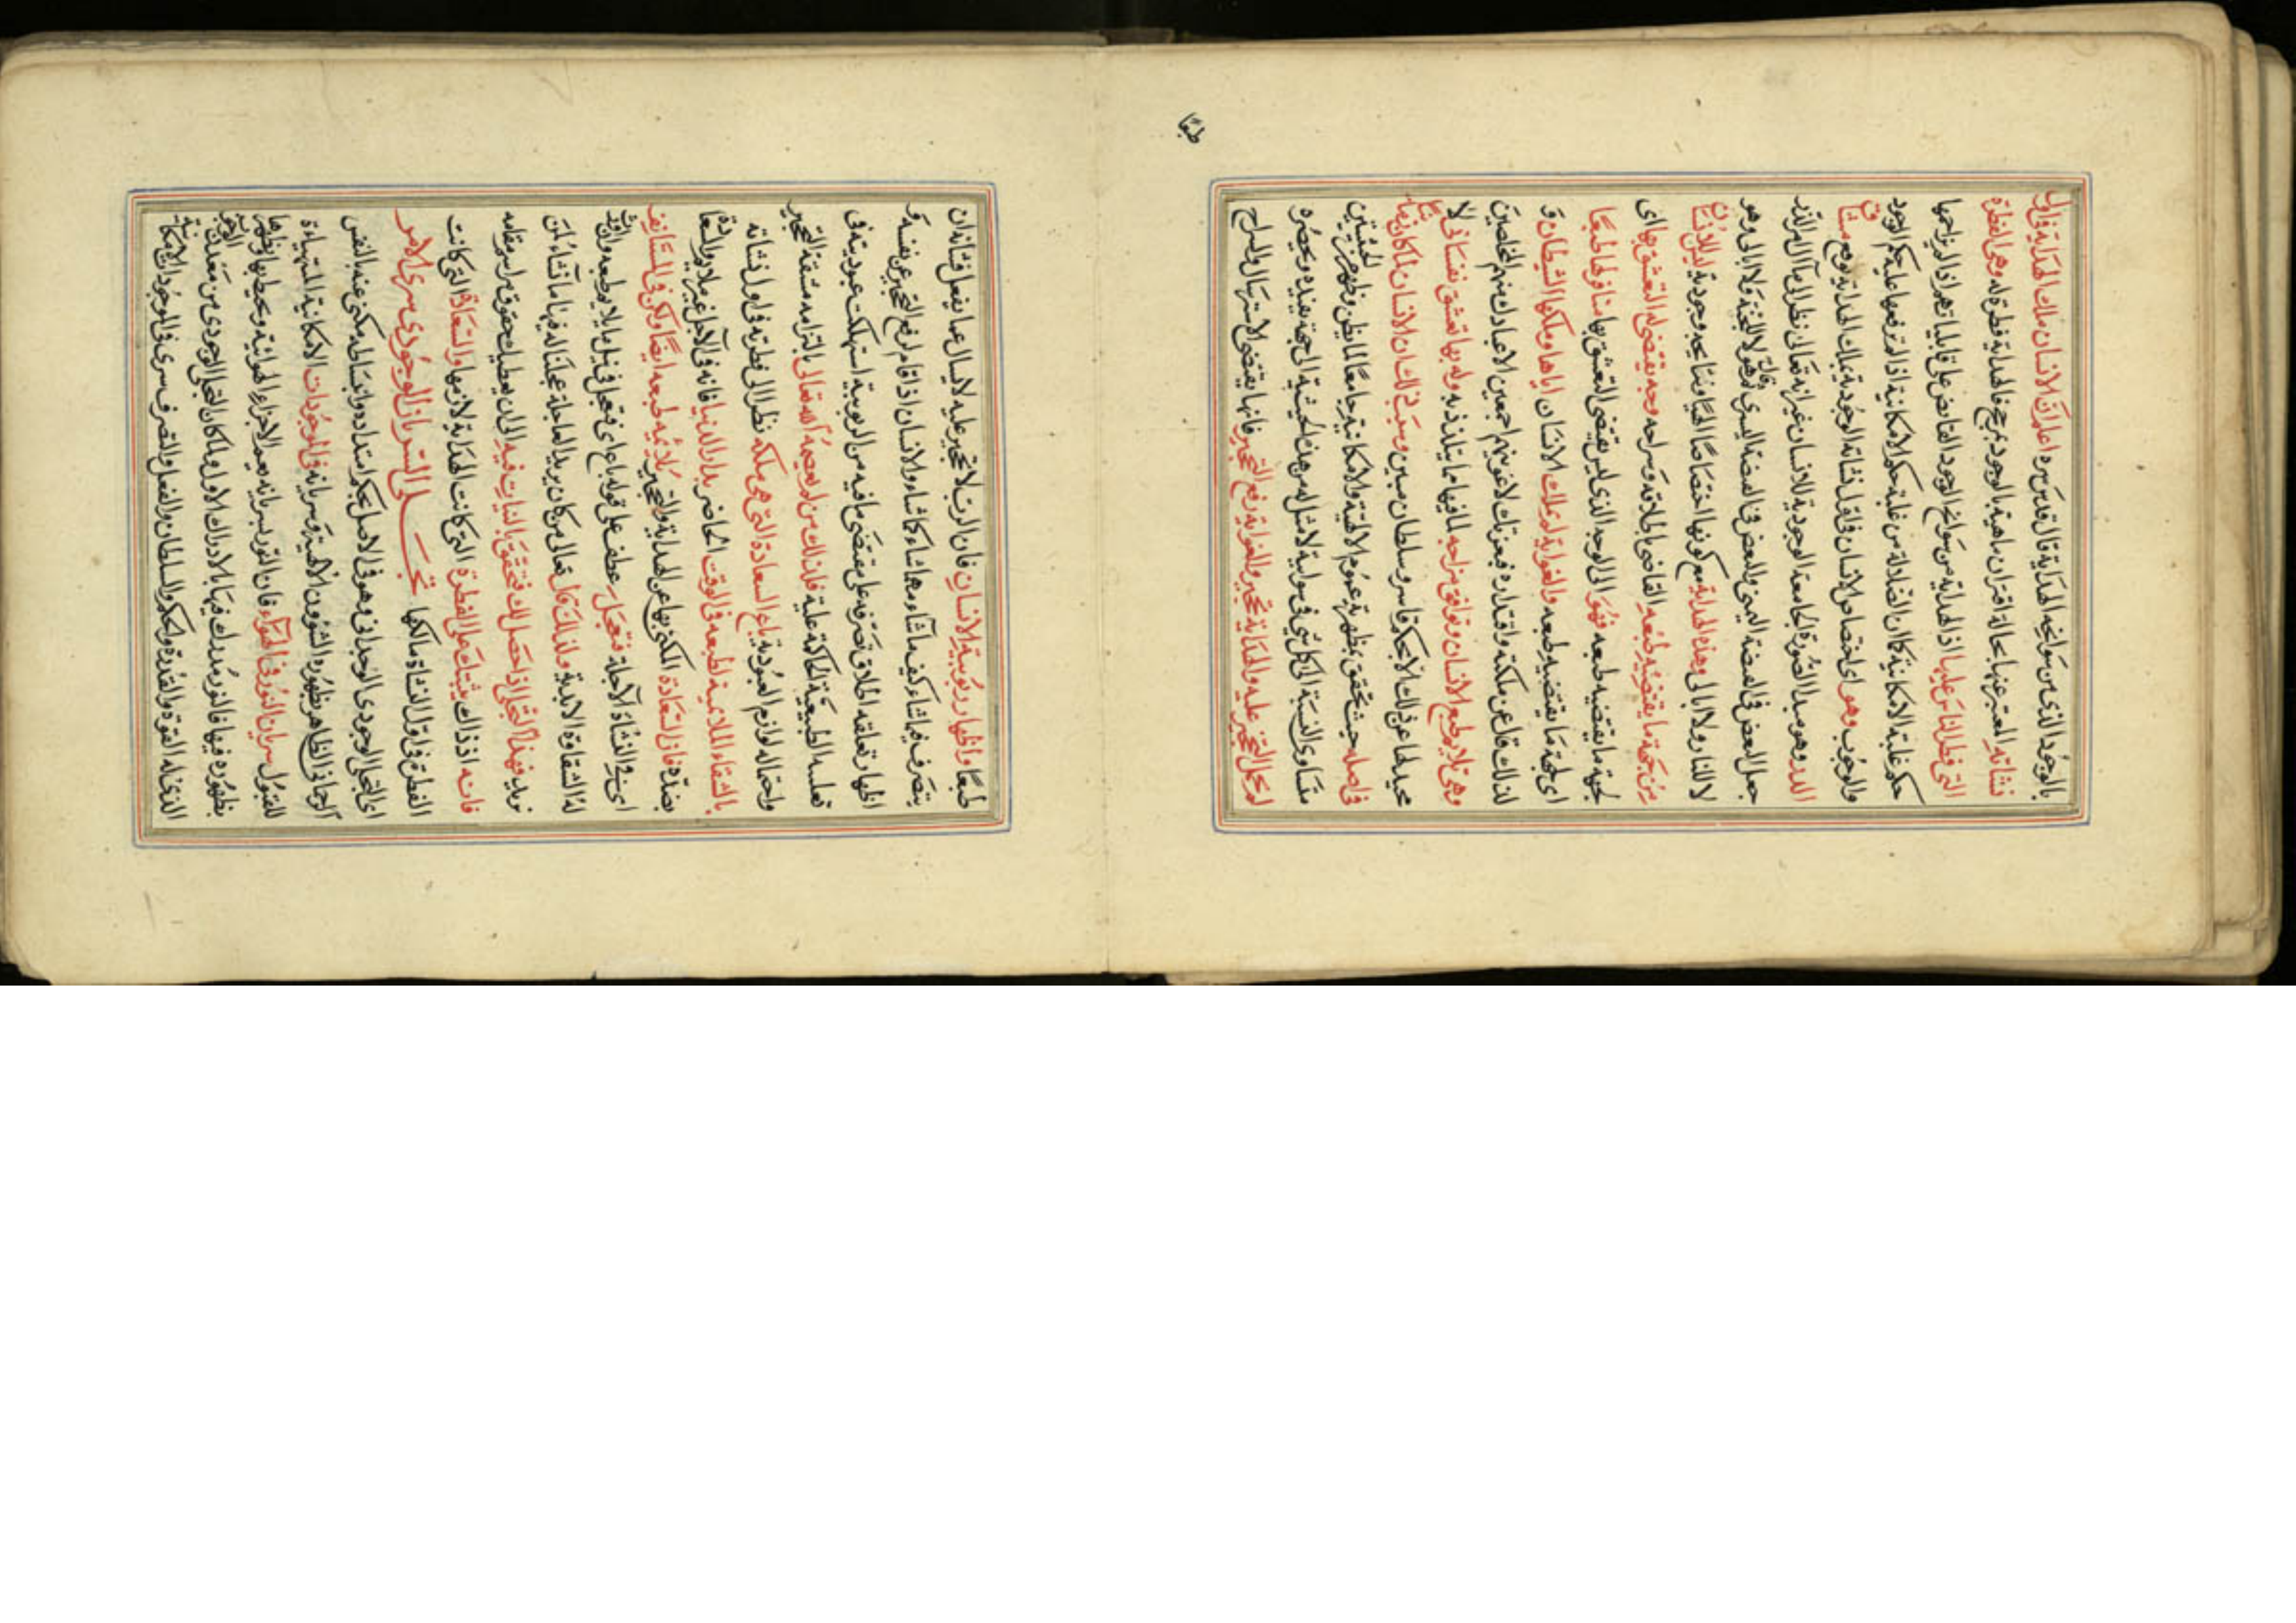 بالوجود الذى من سوانحه الهداية قال قدس سره اعلم ان الانسان ملك الهداية فى اول
نشأته وهى الفطرة له وهى الفطرة
التى فطر الناس عليها اذ الهداية من سوانح الوجود الفائض على قابلياتهم اذا لم يزاحمها
حكم غلبة الامكانية كما ان الضلالة من غلبة حكم الامكانية اذا لم يقع عليه حكم الوجود
والوجوب وهو اى اختصاص الانسان فى اول نشأته الوجودية بملك الهداية يوم ميثاق
الذر وهو مبدأ الصورة الجامعة الوجودية للانسان غير انه تعالى نظرا الى مآل امر الذر
جعل البعض فى القبضة اليمنى والبعض فى القبضة اليسرى وقال هؤلاء للجنة ولا ابالى وهؤلاء
للنار ولا ابالى وهذه الهداية مع كونها اختصاصا الهيا ومنايحه وجودية ليس للانسان
من جهة ما يقتضيه طبعه القاضى باطلاقه وسراحه وجه يقتضى له التعشق بها اى
لجهة ما يقتضيه طبعه فهو الى الوجه الذى ليس يقتضى التعشق بها مناولها طبعا
اى لجهة ما يقتضيه طبعه والغواية لم يملك الانسان اياها وملكها الشيطان و
لذلك قال عن ملكته واقتداره فبعزتك لاغوينهم اجمعين الا عبادك منهم المخلصين
وهى تلايم طبع الانسان وتوافق مزاجه لما فيها مما يتلذذ به وله بها تعشق نفسانى لا
محيد لها عن ذلك الا بحكم قاسر وسلطان مبين وسبب ذلك ان الانسان لما كان
فى اصله بحيث تحقق بمظهرية عموم الالهية والامكانية جامعا لما بطن وظهر من الحيثيتين
متساوى النسبة الى كل شئ فى سوائية لا ميل له من هذه الحيثية الى جهة تقيده وتحصره
لم يحمل التحجير عليه والهداية تحجير والغواية رفع التحجير فانها يقتضى الاسترسال والسراح
طبعا
طبعا واظهار ربوبية الانسان فان الرب لا تحجير عليه لا يسأل عما يفعل فشأنه ان
يتصرف فيما شاء كيف ما شاء ومهما شاء كما شاء والانسان اذا قام لرفع التحجير عن نفسه و
اظهار تعلقه اطلاق تصرفه على مقتضى ما فيه من الربوبية استهلكت عبوديته فى
الطبيعية الحاكمة عليه فلذلك من لم يعصمه الله تعالى بالتزامه مشقة التحجير
واحتماله لوازم العبودية باع السعادة التى هى ملكه نظرا الى فطرته فى اول نشأته
بالشقاء الملايمة لطبعه فى الوقت الحاضر بدار الدنيا فانه فى الآجل غير ملايم
بضده فان السعادة المكنى بها عن الهداية والتحجير يلائمه طبعه ايضا ولكن فى المستأنف
اى فى النشأة الآجلة فتعجل عطف على قوله باع اى فتعجل فى نيل ما يلايم طبعه
له الشقاوة الابدية ولذلك قال تعالى من كان يريد العاجلة عجلنا له فيها ما نشاء لمن
نريد فهذا التجلى اذا حصل لك فتحقق بالثبات فيه الى ان يعطيك حقوق مراسم مقامه
فانه اذ ذاك يثبتك على الفطرة التى كانت الهداية لازمها والسعادة التى كانت
الفطرة فى اول النشأة مالكها تجلى السريان الوجودى سرى الامر
اى التجلى الوجودى الوحدانى وهو فى الاصل بحكم امتداده وانبساطه مكنى عنه بالنفس
الرحمانى الظاهر بظهوره الشؤون الالهية وسريانه فى الموجودات الامكانية المتهيأة
للقبول سريان النور فى الهواء فان النور بسريانه يعم الاجزاء الهوائية ويحيط بها ويظهرها
بظهوره فيها فالنور مدرك فيها بالادراك الاول ولما كان التجلى الوجودى من معدن
الذى له القوة والقدرة والحكم والسلطان والفعل والتصرف سرى فى الموجودات الامكانية